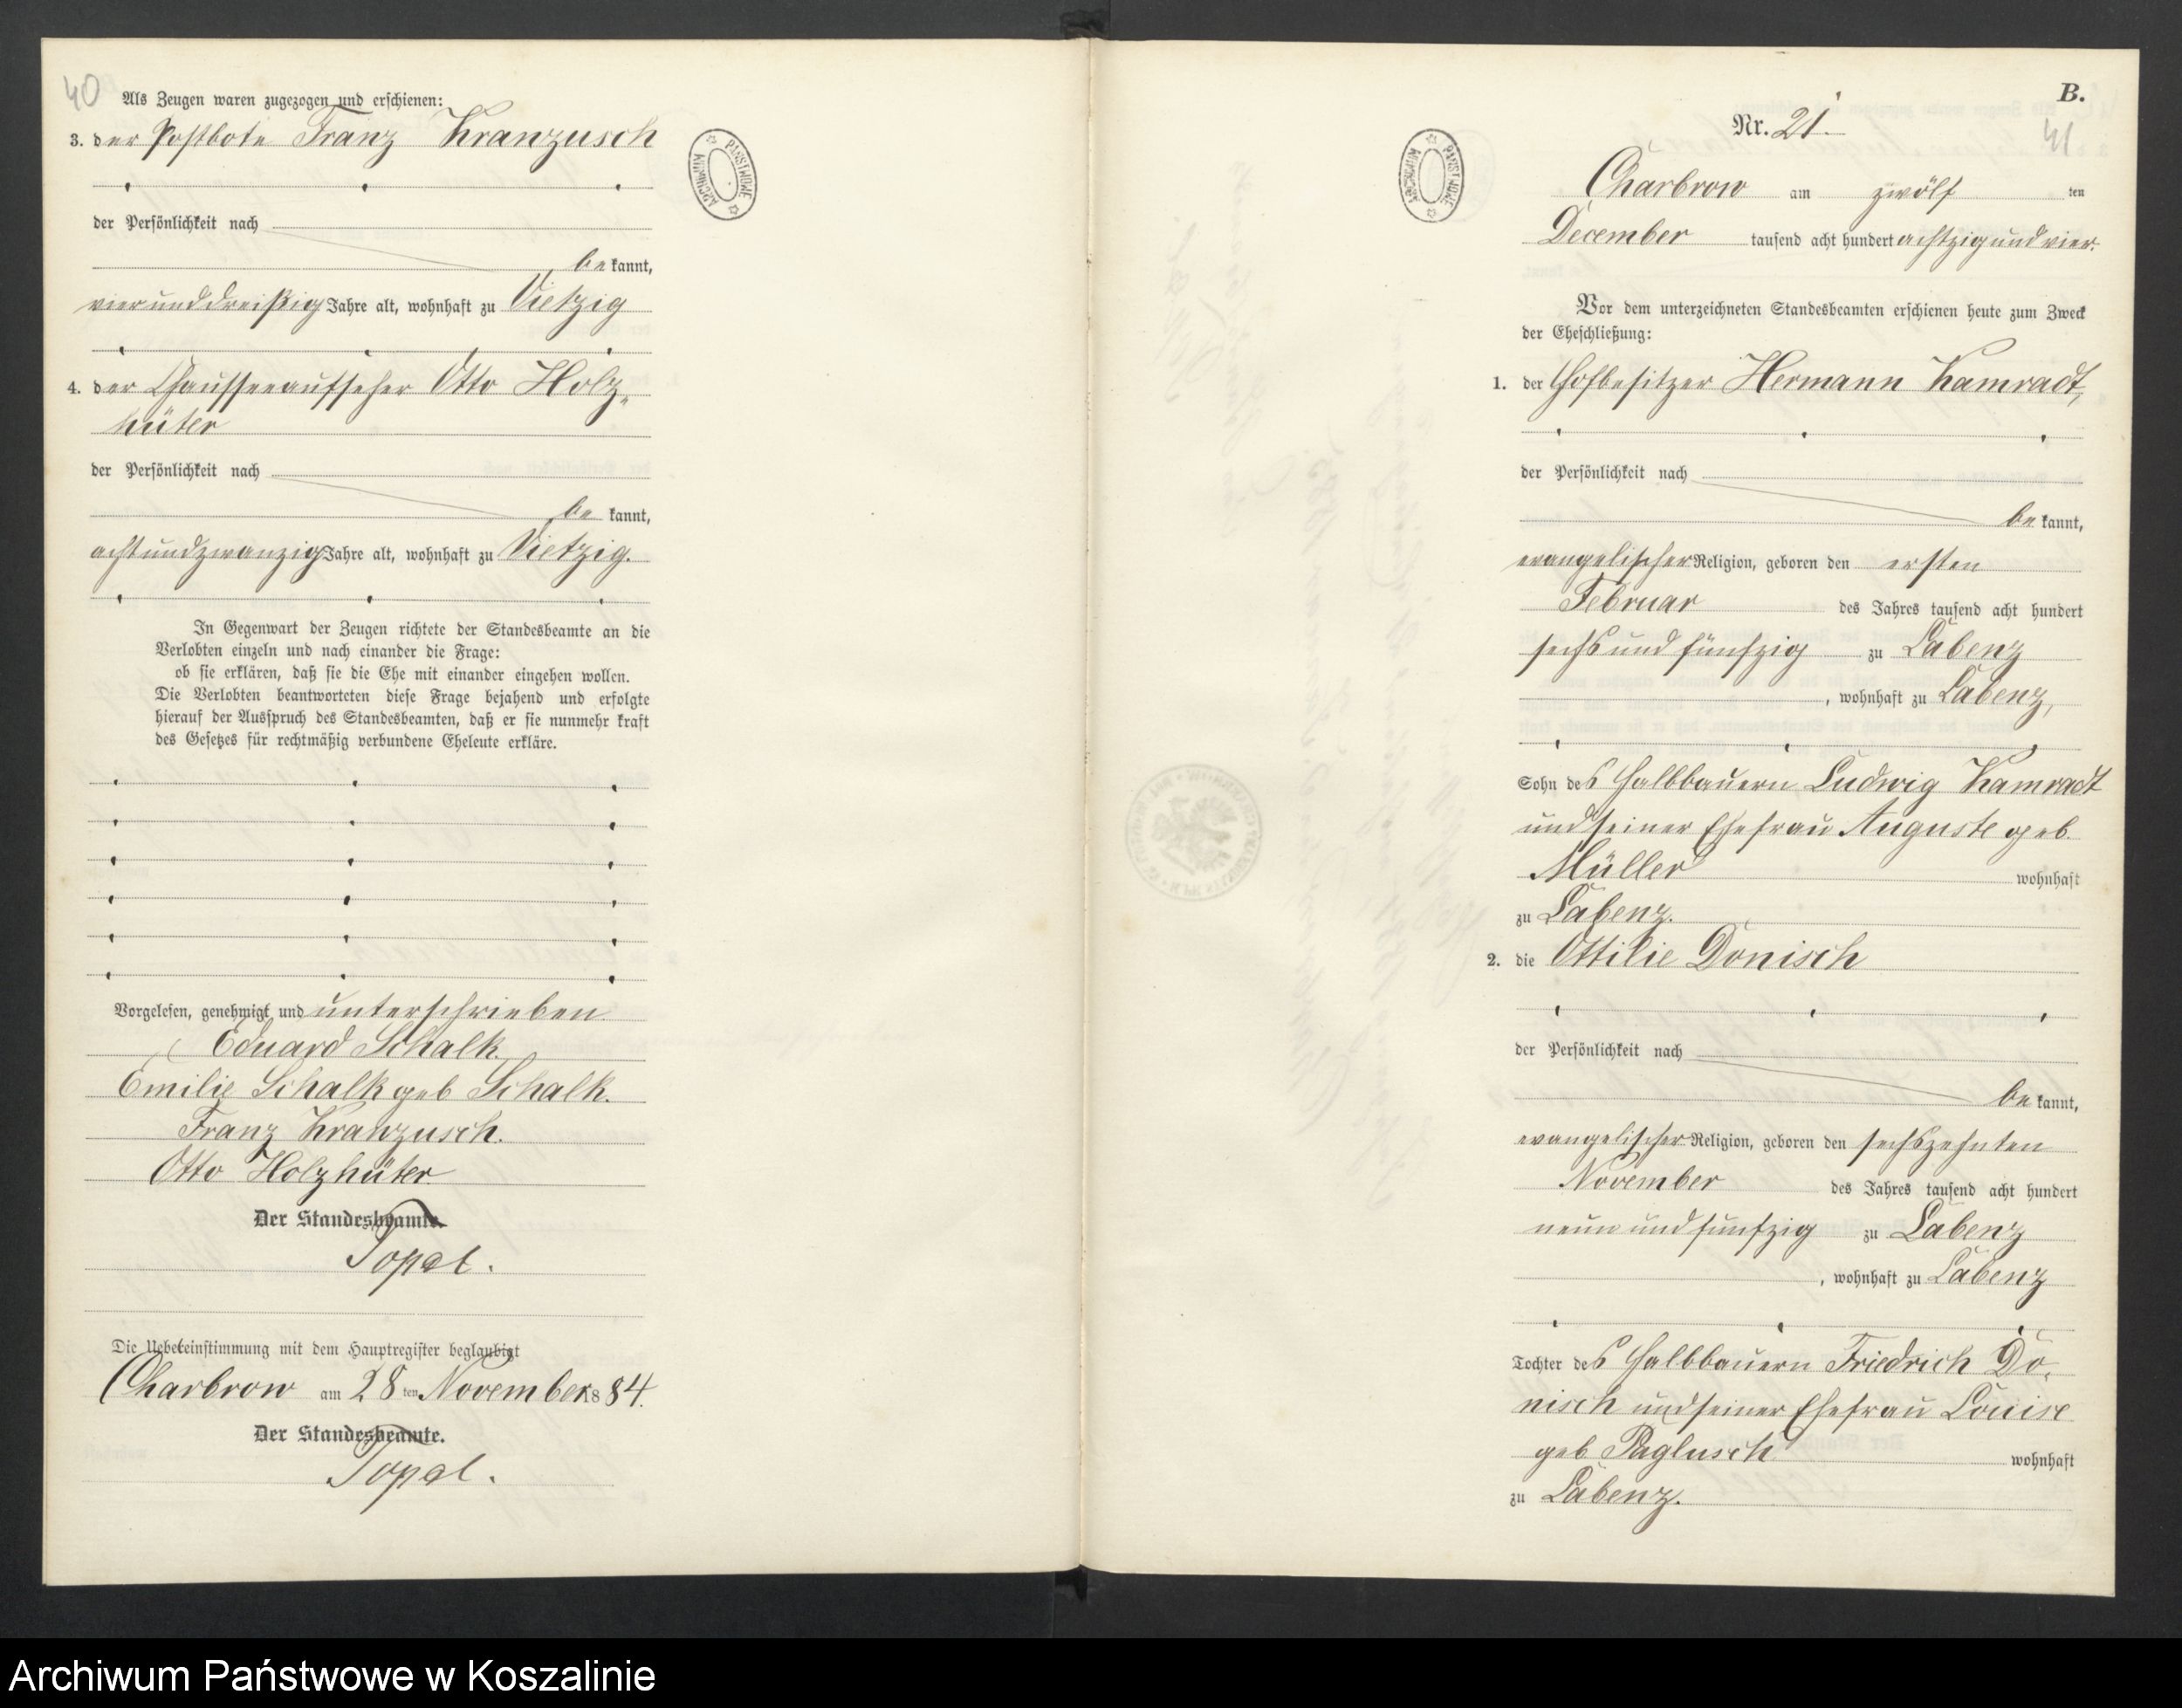 40
Als Zeugen waren zugezogen und erschienen:
3. der Postbote Franz Kranzusch
der Persönlichkeit nach
bekannt,
vierunddreißig Jahre alt, wohnhaft zu Vietzig
4. der Chausseeaufseher Otto Holz-
hüter
der Persönlichkeit nach
bekannt,
achtundzwanzig Jahre alt, wohnhaft zu Vietzig.
In Gegenwart der Zeugen richtete der Standesbeamte an die
Verlobten einzeln und nach einander die Frage:
ob sie erklären, daß sie die Ehe mit einander eingehen wollen.
Die Verlobten beantworteten diese Frage bejahend und erfolgte
hierauf der Ausspruch des Standesbeamten, daß er sie nunmehr kraft
des Gesetzes für rechtmäßig verbundene Eheleute erkläre.
Vorgelesen, genehmigt und unterschrieben
Eduard Schalk.
Emilie Schalk geb Schalk.
Franz Kranzusch.
Otto Holzhüter
Der Standesbeamte.
Topel.
Die Uebereinstimmung mit dem Hauptregister beglaubigt
Charbrow am 28ten November 1884.
Der Standesbeamte.
Topel.
ARCHIWUM PAŃSTWOWE
ARCHIWUM PAŃSTWOWE
B.
Nr. 21.
41
Charbrow am zwölften
December tausend acht hundert achtzigundvier.
Vor dem unterzeichneten Standesbeamten erschienen heute zum Zweck
der Eheschließung:
1. der Hofbesitzer Hermann Kamradt,
der Persönlichkeit nach
bekannt,
evangelischer Religion, geboren den ersten
Februar des Jahres tausend acht hundert
sechs und fünfzig zu Labenz
, wohnhaft zu Labenz,
Sohn des Halbbauern Ludwig Kamradt
und seiner Ehefrau Auguste geb.
Müller wohnhaft
zu Labenz.
2. die Ottilie Donisch
der Persönlichkeit nach
bekannt,
evangelischer Religion, geboren den sechszehnten
November des Jahres tausend acht hundert
neun und fünfzig zu Labenz
, wohnhaft zu Labenz
Tochter des Halbbauern Friedrich Do-
nisch und seiner Ehefrau Louise
geb Paglusch wohnhaft
zu Labenz.
Archiwum Państwowe w Koszalinie